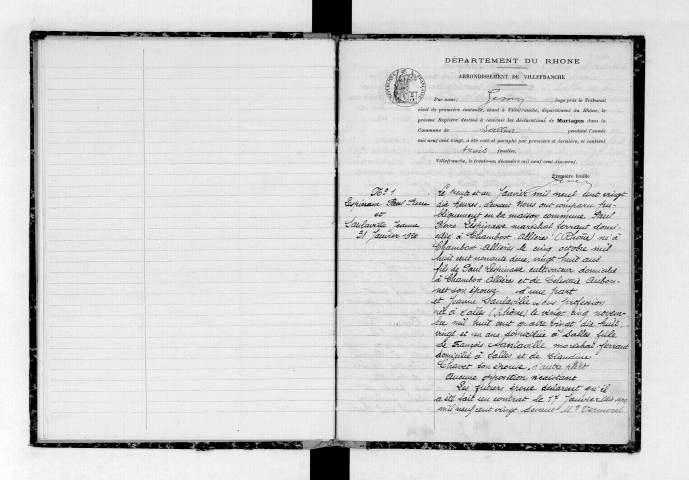 DÉPARTEMENT DU RHONE
ARRONDISSEMENT DE VILLEFRANCHE
Par nous, Juge près le Tribunal
civil de première instance, séant à Villefranche, département du Rhône, le
présent Registre destiné à recevoir les déclarations de Mariages dans la
Commune de Salles pendant l'année
mil neuf cent vingt, a été coté et paraphé par première et dernière, et contient
trois feuilles.
Villefranche, le trente-un décembre mil neuf cent dix-neuf.
Première feuille
N° 1
Lespinasse Paul Pierre
et
Santaville Jeanne
31 Janvier 1920
Le trente et un Janvier mil neuf cent vingt
dix heures, devant Nous ont comparu pu-
bliquement en la maison commune Paul
Pierre Lespinasse maréchal ferrant domi-
cilié à Chambost Allières (Rhône) né à
Chambost Allières le cinq octobre mil
huit cent nonante deux, vingt huit ans
fils de Paul Lespinasse cultivateur domiciliés
à Chambost Allières et de
son épouse d'une part
et Jeanne Santaville sans profession
née à Salles (Rhône) le vingt cinq novem-
bre mil huit cent quatre vingt dix huit,
vingt et un ans, domiciliée à Salles fille
de François Santaville maréchal ferrant
domicilié à Salles et de Claudine
Chavet son épouse, d'autre part
Aucune opposition n'existant
Les futurs époux déclarent qu'il
a été fait un contrat le 17 Janvier
mil neuf cent vingt devant Me Vermorel